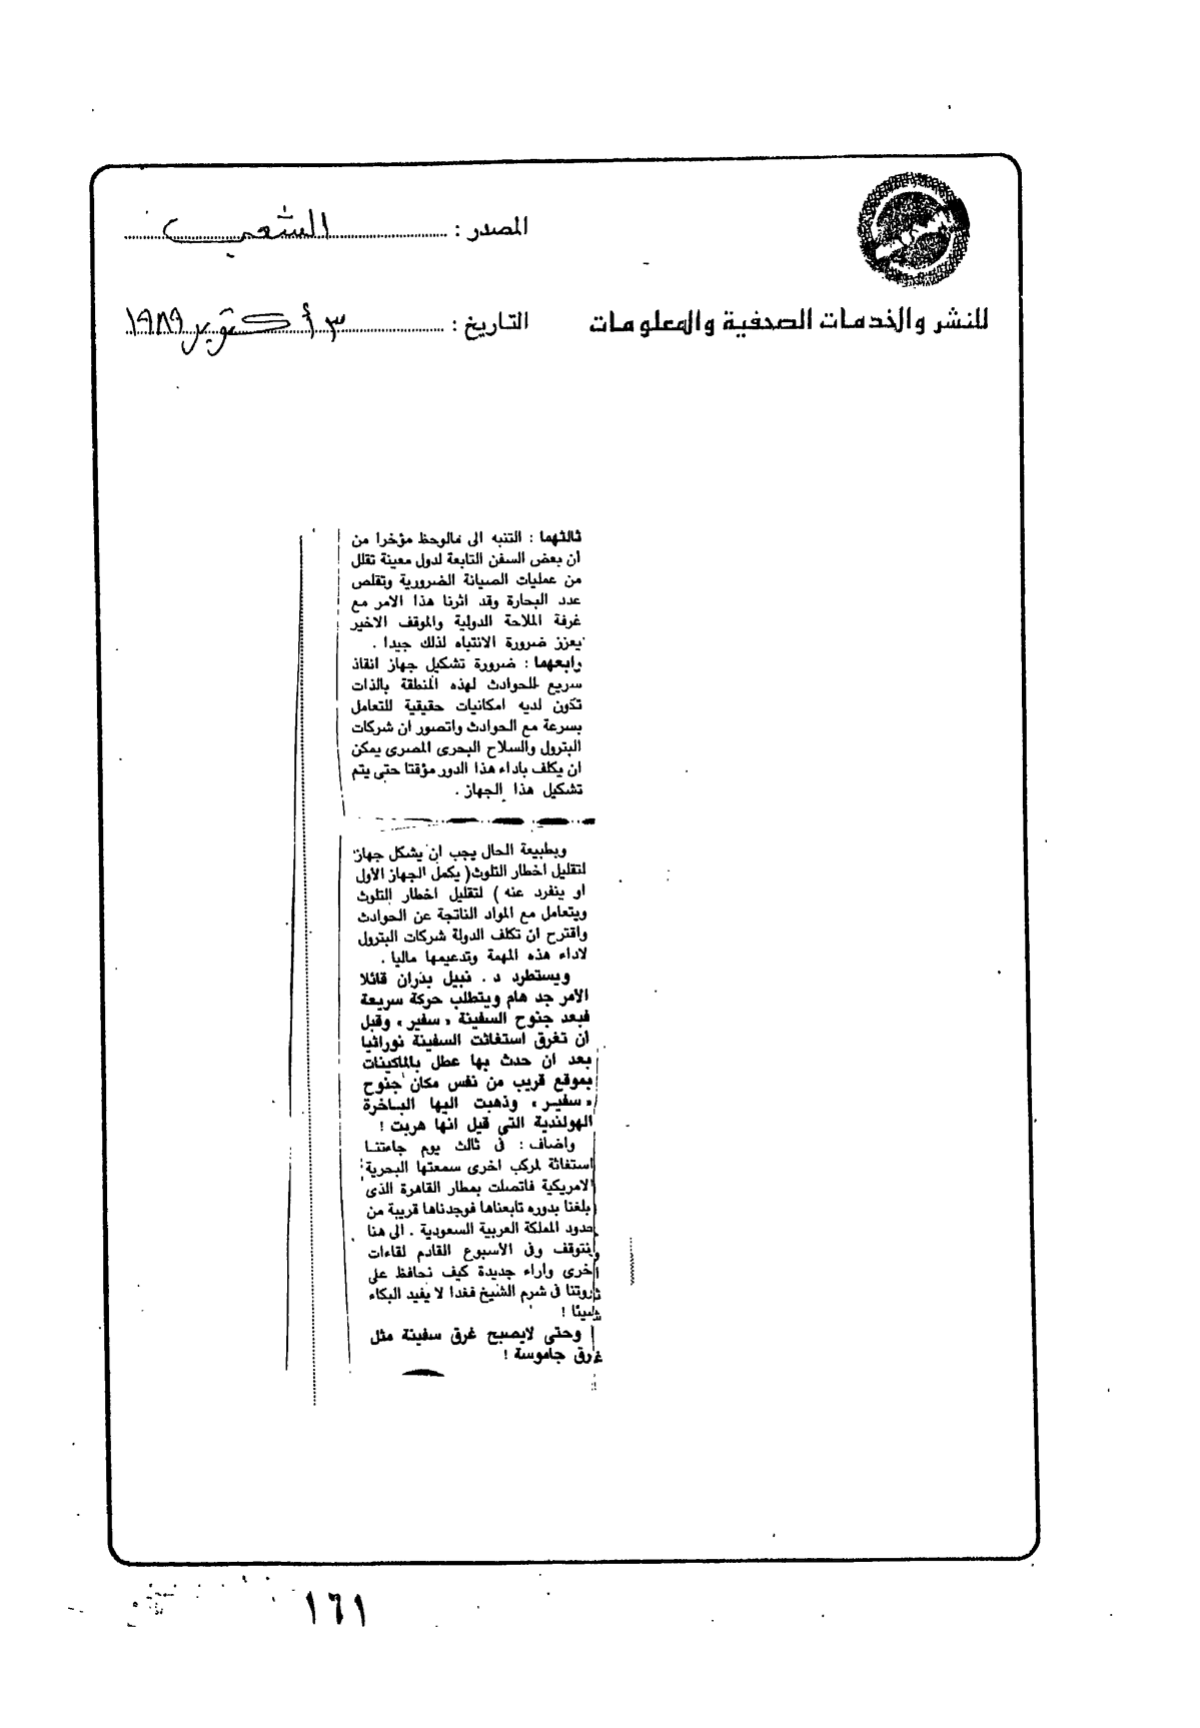 المصدر : الشعب
للنشر والخدمات الصحفية والمعلومات
التاريخ : ٣ أكتوبر ١٩٨٩
ثالثهما : التنبه الى مالوحظ مؤخرا من
ان بعض السفن التابعة لدول معينة تقلل
من عمليات الصيانة الضرورية وتقلص
عدد البحارة وقد اثرنا هذا الامر مع
غرفة الملاحة الدولية والموقف الاخير
يعزز ضرورة الانتباه لذلك جيدا .
رابعهما : ضرورة تشكيل جهاز انقاذ
سريع للحوادث لهذه المنطقة بالذات
تكون لديه امكانيات حقيقية للتعامل
بسرعة مع الحوادث واتصور ان شركات
البترول والسلاح البحرى المصرى يمكن
ان يكلف باداء هذا الدور مؤقتا حتى يتم
تشكيل هذا الجهاز .
وبطبيعة الحال يجب ان يشكل جهاز
لتقليل اخطار التلوث( يكمل الجهاز الأول
او ينفرد عنه ) لتقليل اخطار التلوث
ويتعامل مع المواد الناتجة عن الحوادث
واقترح ان تكلف الدولة شركات البترول
لاداء هذه المهمة وتدعيمها ماليا .
ويستطرد د . نبيل بدران قائلا
الأمر جد هام ويتطلب حركة سريعة
فبعد جنوح السفينة « سفير » وقبل
ان تغرق استغاثت السفينة نوراثيا
بعد ان حدث بها عطل بالماكينات
بموقع قريب من نفس مكان جنوح
« سفير » وذهبت اليها الباخرة
الهولندية التى قيل انها هربت !
واضاف : فى ثالث يوم جاءتنا
استغاثة لمركب اخرى سمعتها البحرية
الامريكية فاتصلت بمطار القاهرة الذى
بلغنا بدوره تابعناها فوجدناها قريبة من
حدود المملكة العربية السعودية . الى هنا
ونتوقف وفى الأسبوع القادم لقاءات
اخرى واراء جديدة كيف نحافظ على
ثروتنا فى شرم الشيخ فغدا لا يفيد البكاء
شيئا !
وحتى لايصبح غرق سفينة مثل
غرق جاموسة !
١٦١